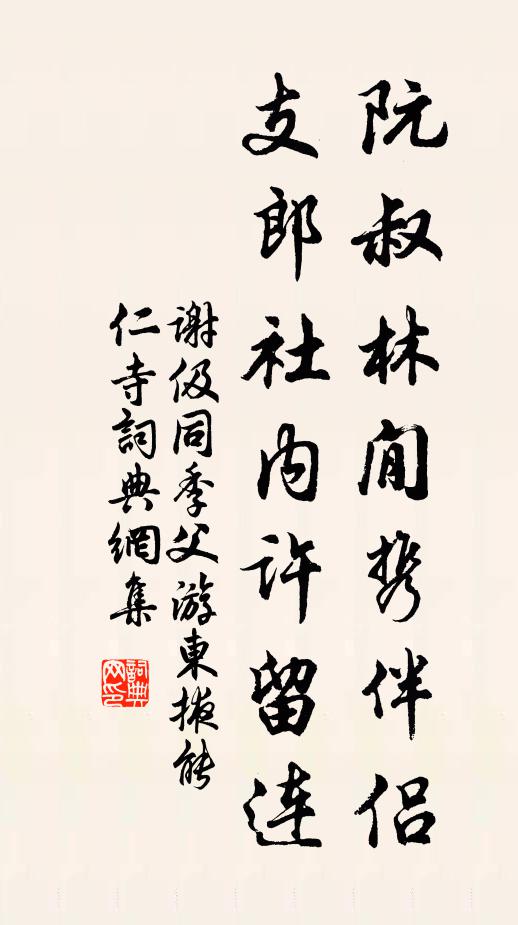 阮叔林間携伴侣
支郎社内许留連
谢伋同季父游東掖能
仁寺詞典網集
詞典网印